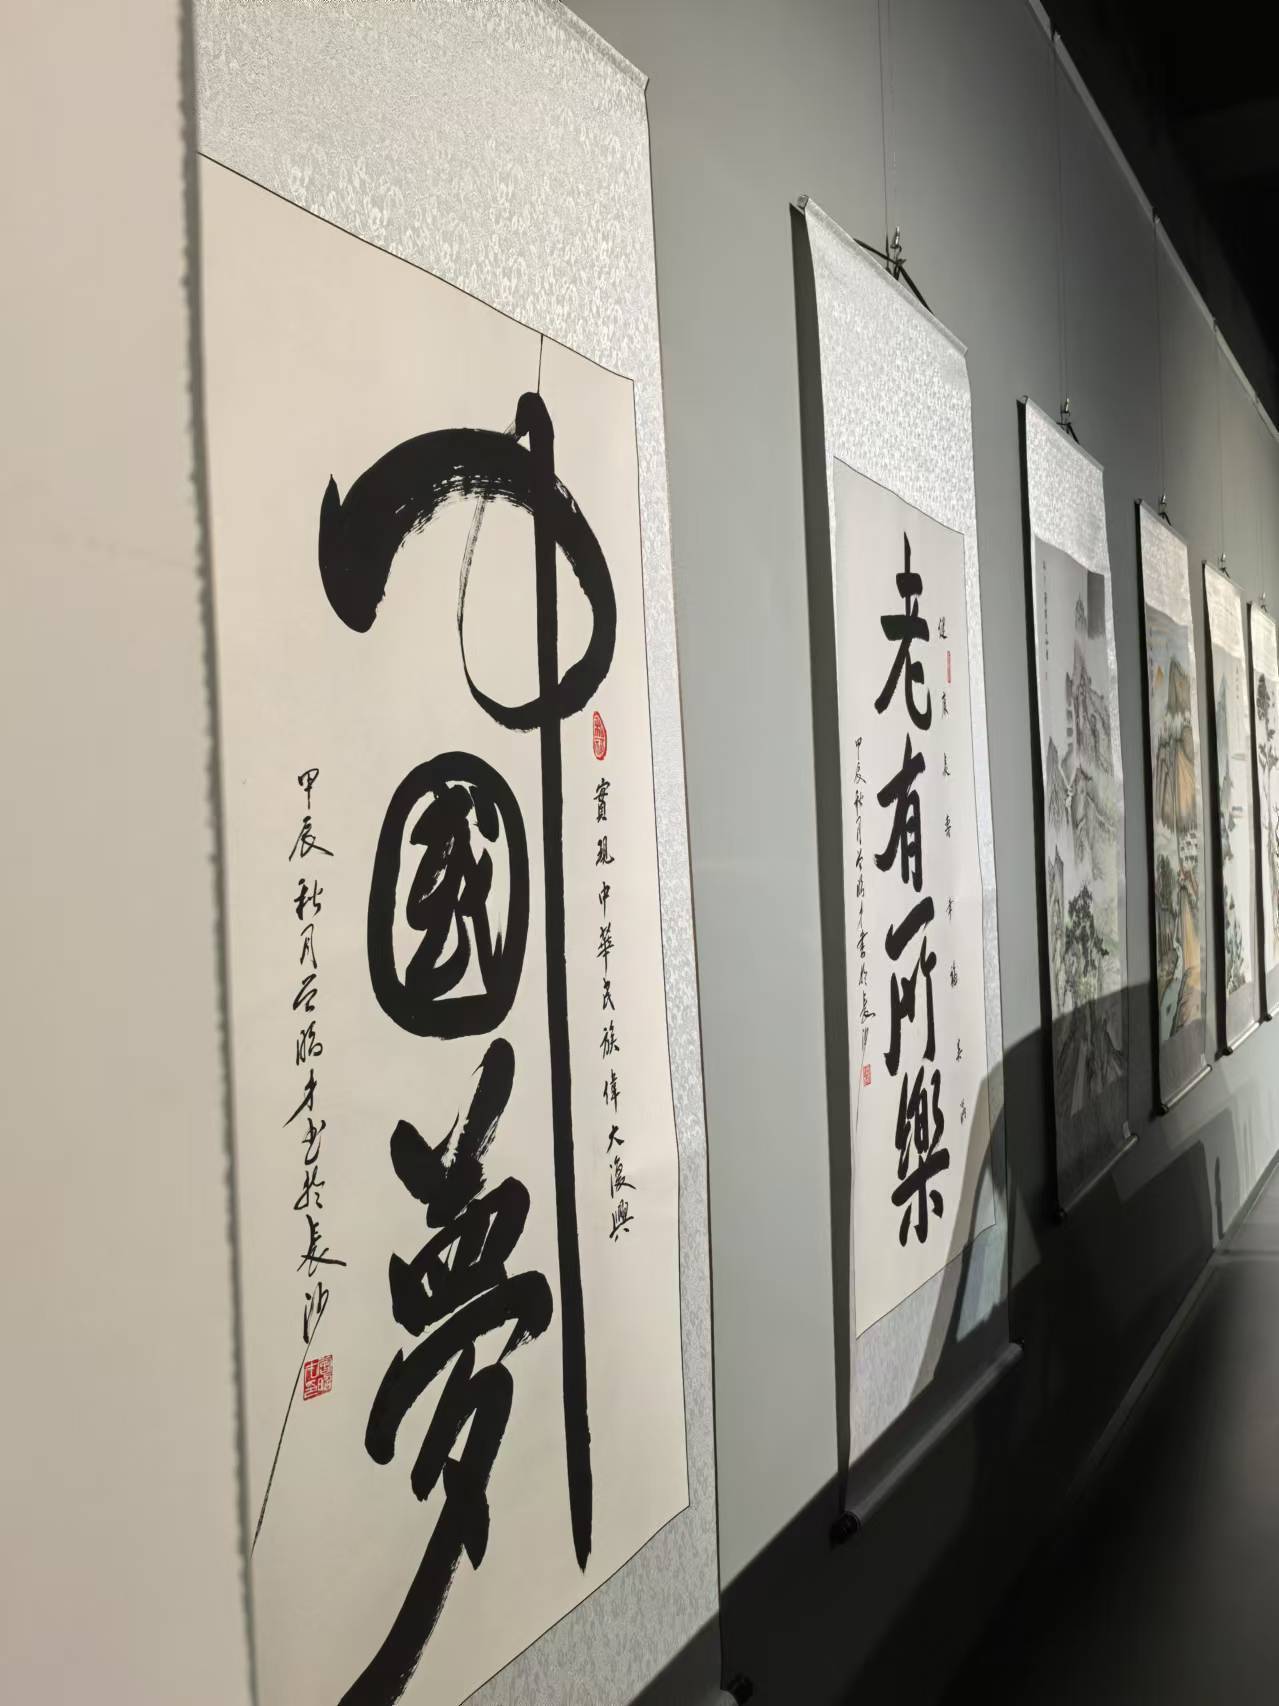 中國夢
實現中華民族偉大復興
甲辰秋月
才书於長沙
老有所樂
健康長壽幸福美滿
甲辰秋月
才書於長沙